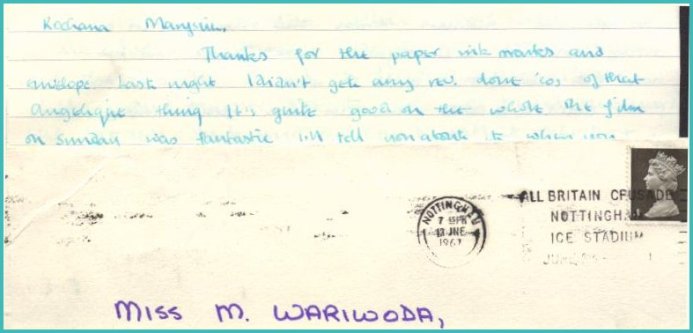 Kochana Marysiu,
Thanks for the paper ink marks and
envelope last night I didn't get any rev. done 'cos of that
Angelique thing It's quite good on the whole The film
on Sunday was fantastic I'll tell you about it when you
NOTTINGHAM
7
JNE
1967
ALL BRITAIN CRUSADE
NOTTINGHAM
ICE STADIUM
JUNE
MISS M. WARIWODA,